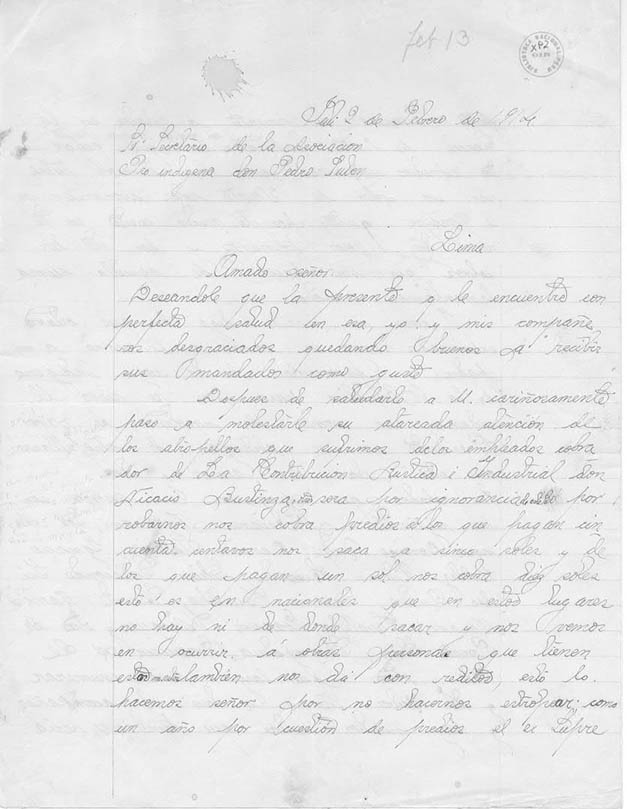 feb 13
BIBLIOTECA NACIONAL PERU
XP2
2 de Febrero de 1914
Sr Secretario de la Asociacion
Pro indigena don Pedro Sulen
Lima
Amado señor:
Deseandole que la presente le encuentre con
perfecta salud en esa, yo y mis compañe
ros desgraciados quedando buenos a recibir
sus mandados como guste
Despues de saludarle a U. cariñosamente
paso a molestarle su atareada atención de
los atropellos que sufrimos delos empleados cobra
dor de La Contribucion Rustica i Industrial don
Nicacio Bustinza, sera por ignorancia por
robarnos nos cobra Predios de los que pagan cin
cuenta sentavos nos saca a sinco soles y de
los que pagan un sol nos cobra diez soles
esto es en nacionales que en estos lugares
no hay ni de donde sacar y nos vemos
en ocurrir á otras personas que tienen
tambien nos da con reditos, esto lo
hacemos señor por no hacernos estropear; como
un año por cuestión de predios el